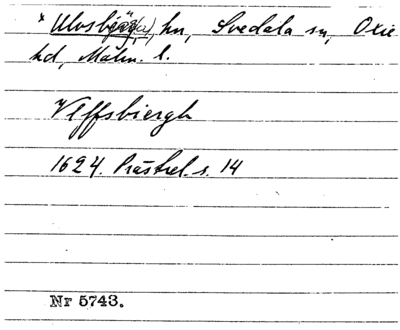 * Ulvsbjär(a), hn, Svedala sn, Oxie
hd, Malm. l.
Vlffsbiergh
1624. Prästrel. s. 14
Nr 5743.